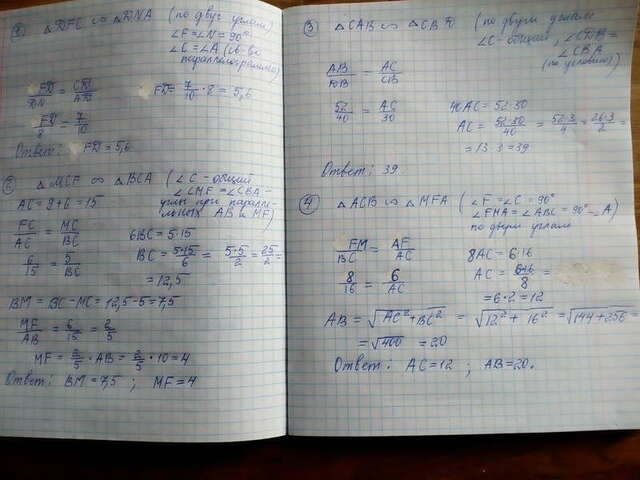 △DFC ∽ △DNA (по двум углам)
∠F=∠N=90°
∠C=∠A (св-во
параллелограмма)
FD/DN = CD/AD FD = 7/10 · 8 = 5,6
FD/8 = 7/10
Ответ: FD = 5,6
⑥ △MCF ∽ △BCA (∠C - общий
∠CMF = ∠CBA -
AC = 9+6 = 15 углы при паралле-
льных AB и MF)
FC/AC = MC/BC 6BC = 5·15
6/15 = 5/BC BC = 5·15/6 = 5·5/2 = 25/2 =
= 12,5
BM = BC - MC = 12,5 - 5 = 7,5
MF/AB = 6/15 = 2/5
MF = 2/5 · AB = 2/5 · 10 = 4
Ответ: BM = 7,5 ; MF = 4
③ △CAB ∽ △CBD (по двум углам
∠C - общий, ∠CDB =
∠CBA
(по условию)
AB/DB = AC/CB
52/40 = AC/30 40AC = 52·30
AC = 52·30/40 = 52·3/4 = 26·3/2 =
= 13·3 = 39
Ответ: 39
④ △ACB ∽ △MFA (∠F = ∠C = 90°
∠FMA = ∠ABC = 90° - A)
по двум углам
FM/BC = AF/AC 8AC = 6·16
8/16 = 6/AC AC = 6·16/8 =
= 6·2 = 12
AB = √AC²+BC² = √12² + 16² = √144+256 =
= √400 = 20
Ответ: AC = 12 ; AB = 20.